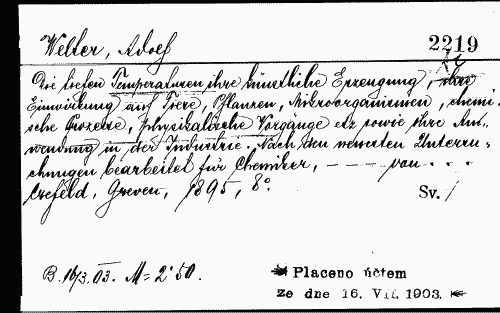 Welter, Adolf
2219
Die tiefen Temperaturen, ihre künstliche Erzeugung, ihre
Einwirkung auf Tiere, Pflanzen, Mikroorganismen, chemi-
sche Prozesse, physikalische Vorgänge etz sowie ihre An-
wendung in der Industrie. Nach den neuesten Untersu-
chungen bearbeitet für Chemiker, – – – von . . .
Crefeld, Greven, 1895, 8°.
Sv. 1
B. 16/3. 03. M = 2·50.
Placeno účtem
ze dne 16. VII. 1903.